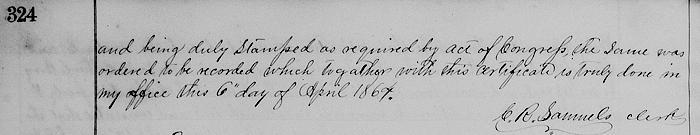 324
and being duly Stamped as required by act of Congress, the Same was
ordered to be recorded which togather with this certificate is truly done in
my office this 6" day of April 1864.
C. R. Samuels clerk